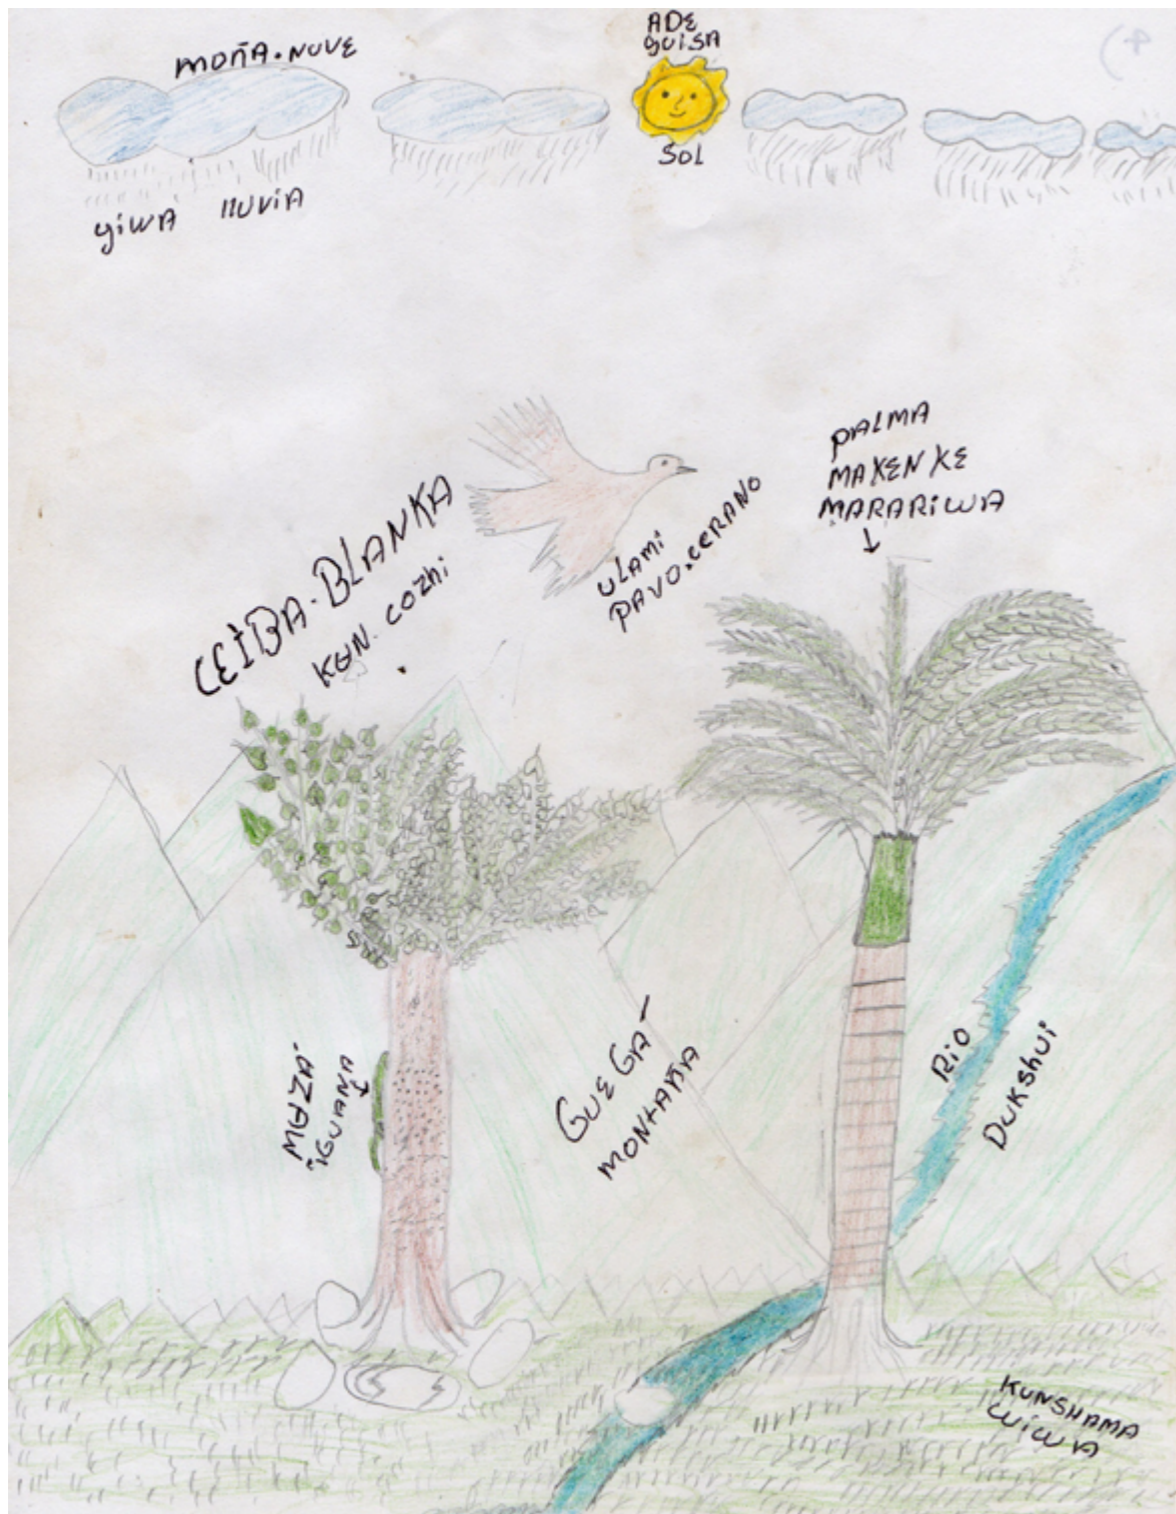 ADE
GUISA
SOL
MOÑA.NUVE
YiWA lluviA
4)
CEIBA.BLANKA
KɄN. COZhi
ULAMi
PAVO.CERANO
PALMA
MAKENKE
MARARiWA
MɄZA-
iGUANA
GUEGA-
MONTAÑA
RiO
DUKShUi
KUNSHAMA
WiWA